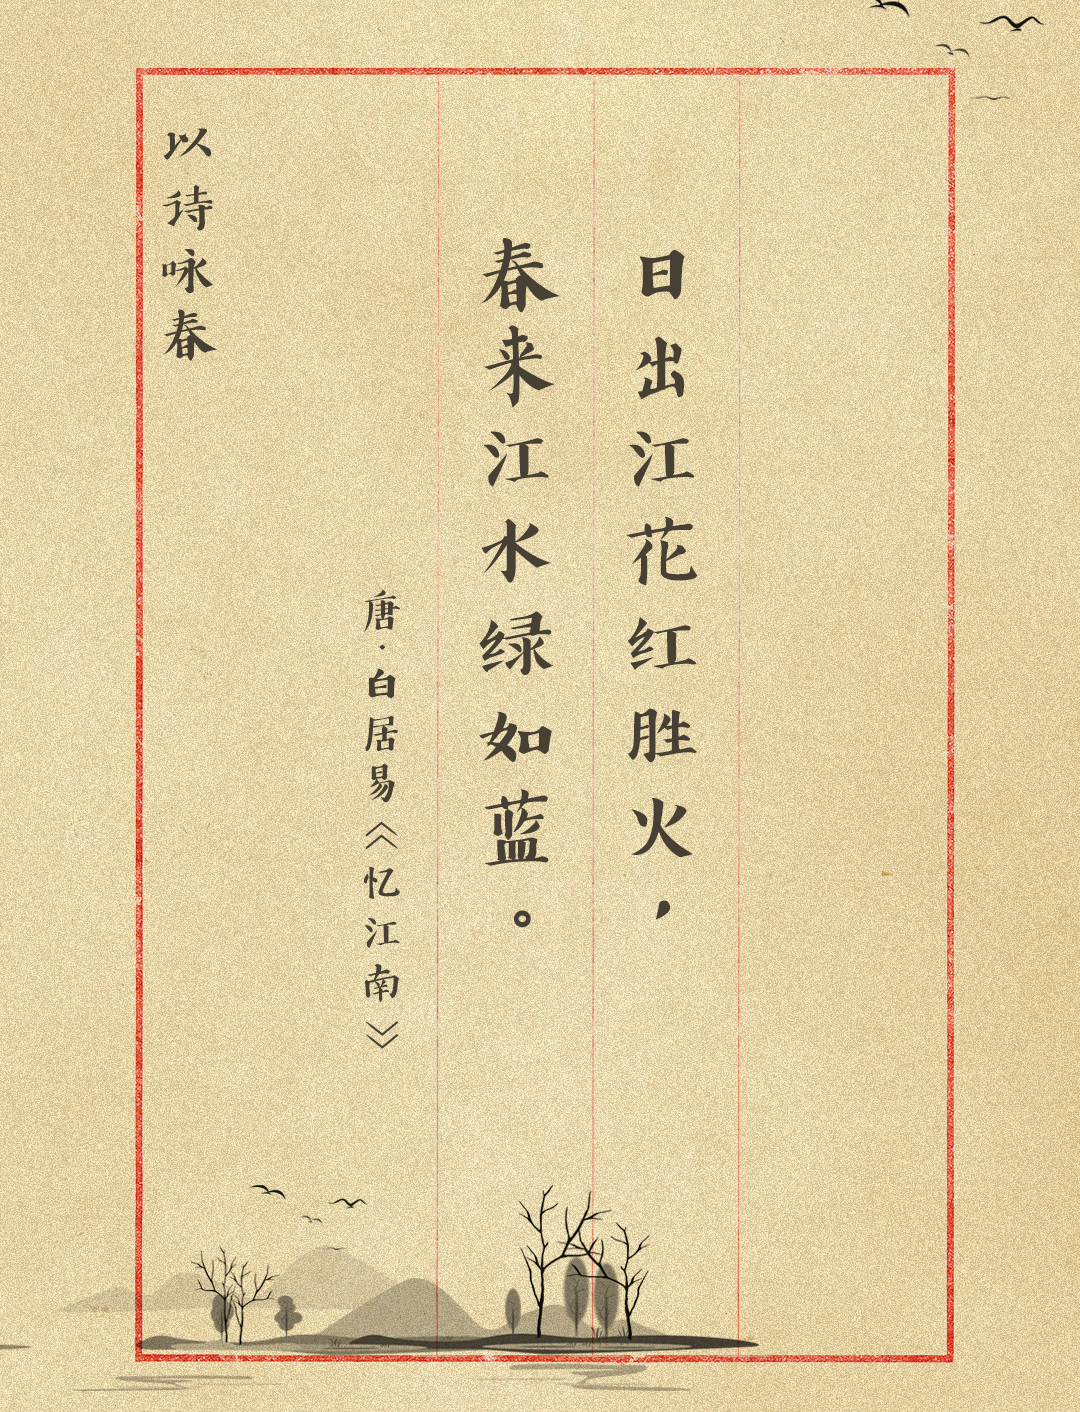 日出江花红胜火，
春来江水绿如蓝。
唐·白居易《忆江南》
以诗咏春